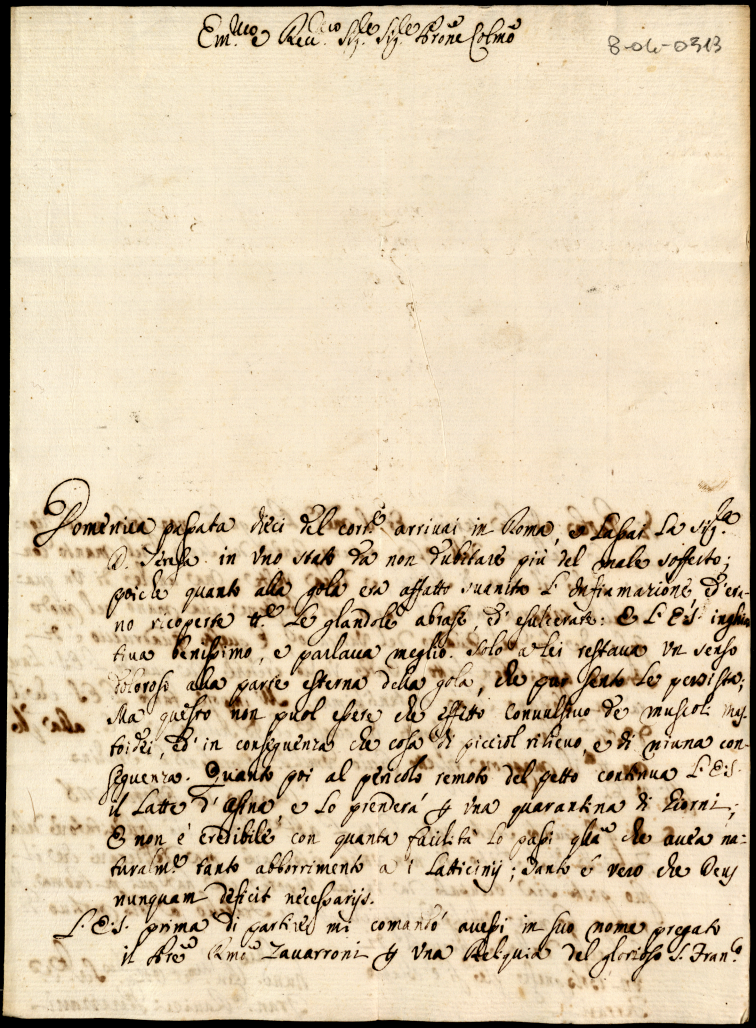 Em.mo e Rev.mo Sig.re Sig.re Prone Colmo
8-06-0313
Domenica passata dieci del corr.e arrivai in Roma, e lasciai la Sig.ra
D. Teresa in uno stato da non dubitare più del male sofferto;
poiche quanto alla gola era affatto svanita l'Infiamazione, ed'era-
no ricoperte tt.e le glandole abrase, ed' esulcerate: e S. E. S. inghiot
tiva benissimo, e parlava meglio. Solo a lei restava un senso
doloroso alla parte esterna della gola, che pur sento le persista;
Ma questo non puol essere che effetto convulsivo de muscoli mas
toidei, ed' in conseguenza che cosa di picciol rilievo, e di niuna con-
seguenza. Quanto poi al pericolo remoto del petto continua S. E. S.
il Latte d'Asina e lo prenderà p una quarantina di Giorni;
E non è credibile con quanta facilità lo passi quella che avea na-
turalm.e tanto abborrimento a i latticinij; tanto è vero che Deus
nunquam deficit necessarijs.
S. E. S. prima di partire mi comandò avessi in suo nome pregato
il Pre Rmo Zavarroni p una Reliquia del glorioso S. Fran.o